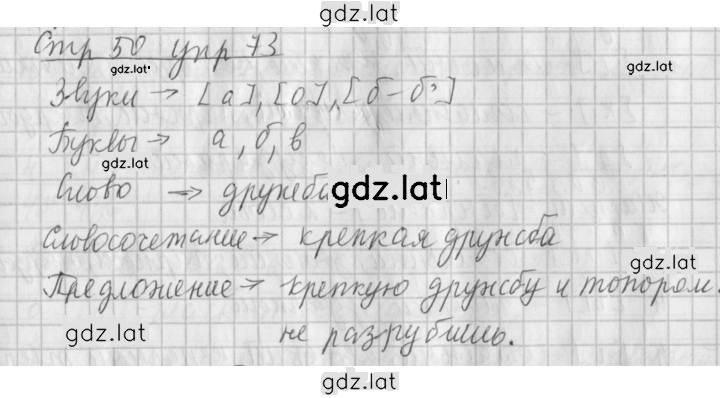 gdz.lat
Стр 50 упр 73
gdz.lat
gdz.lat
Звуки → [а], [о], [б-б']
Буквы → а, б, в
gdz.lat
Слово → дружба
gdz.lat
Словосочетание → крепкая дружба
gdz.lat
Предложение → крепкую дружбу и топором
gdz.lat
не разрубишь.
gdz.lat